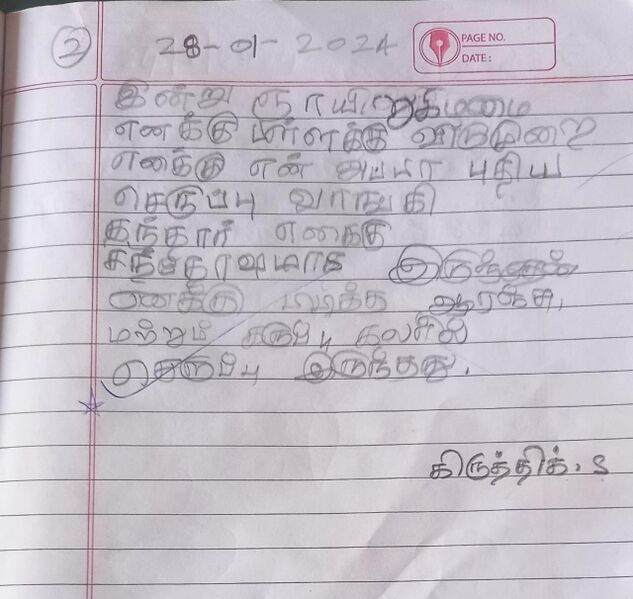 2
28-01-2024
PAGE NO.
DATE:
இன்று ஞாயிறுகிழமை
எனக்கு பள்ளக்கு
எனக்கு என் அப்பா புதிய
செருப்பு வாங்கி
தந்தார் எனக்கு
சந்தோஷமாக
எனக்கு பிடித்த ஆரஞ்சு,
மற்றும் கருப்பு கலரில்
செருப்பு இருந்தது.
கிருத்திக். S